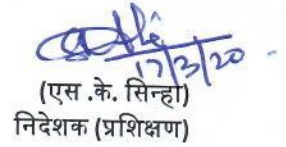 17/3/20
(एस .के. सिन्हा)
निदेशक (प्रशिक्षण)